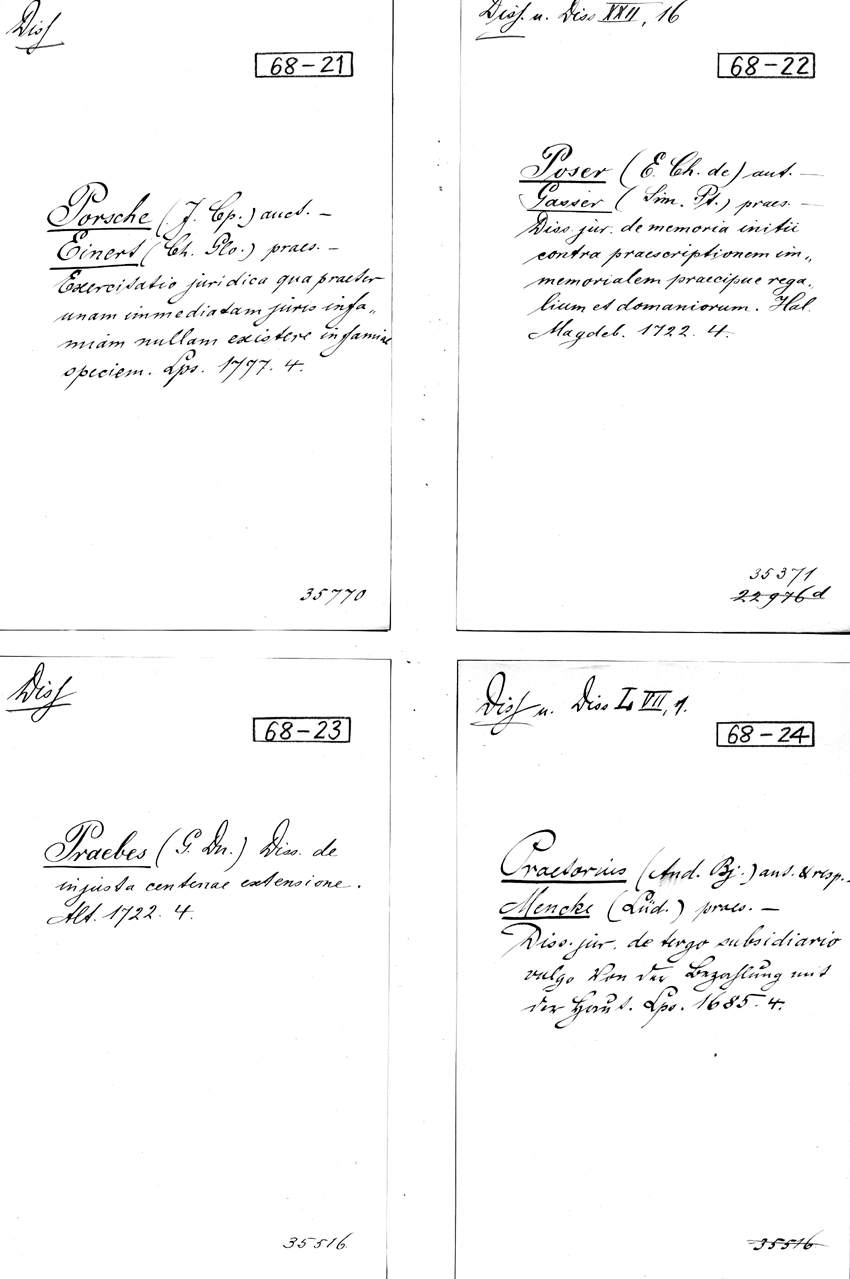 Diss
68-21
Porsche (J. Cp.) auct. —
Einert (Ch. Glo.) praes. —
Exercitatio juridica qua praeter
unam immediatam juris infa„
miam nullam existere infamiae
speciem. Lps. 1777. 4.
35770
Diss. u. Diss XXII, 16
68-22
Poser (E. Ch. de) aut. —
Gasser (Sim. Pt.) praes. —
Diss. jur. de memoria initii
contra praescriptionem im„
memorialem praecipue rega„
lium et domaniorum. Hal.
Magdeb. 1722. 4.
35371
22976d
Diss
68-23
Praebes (G. Dn.) Diss. de
injusta centenae extensione.
Alt. 1722. 4.
35516
Diss u. Diss L VII, 1.
68-24
Praetorius (And. Bj.) aut. & resp. —
Mencke (Lüd.) praes. —
Diss. jur. de tergo subsidiario
vulgo Von der Bezahlung mit
der Haut. Lps. 1685. 4.
35516